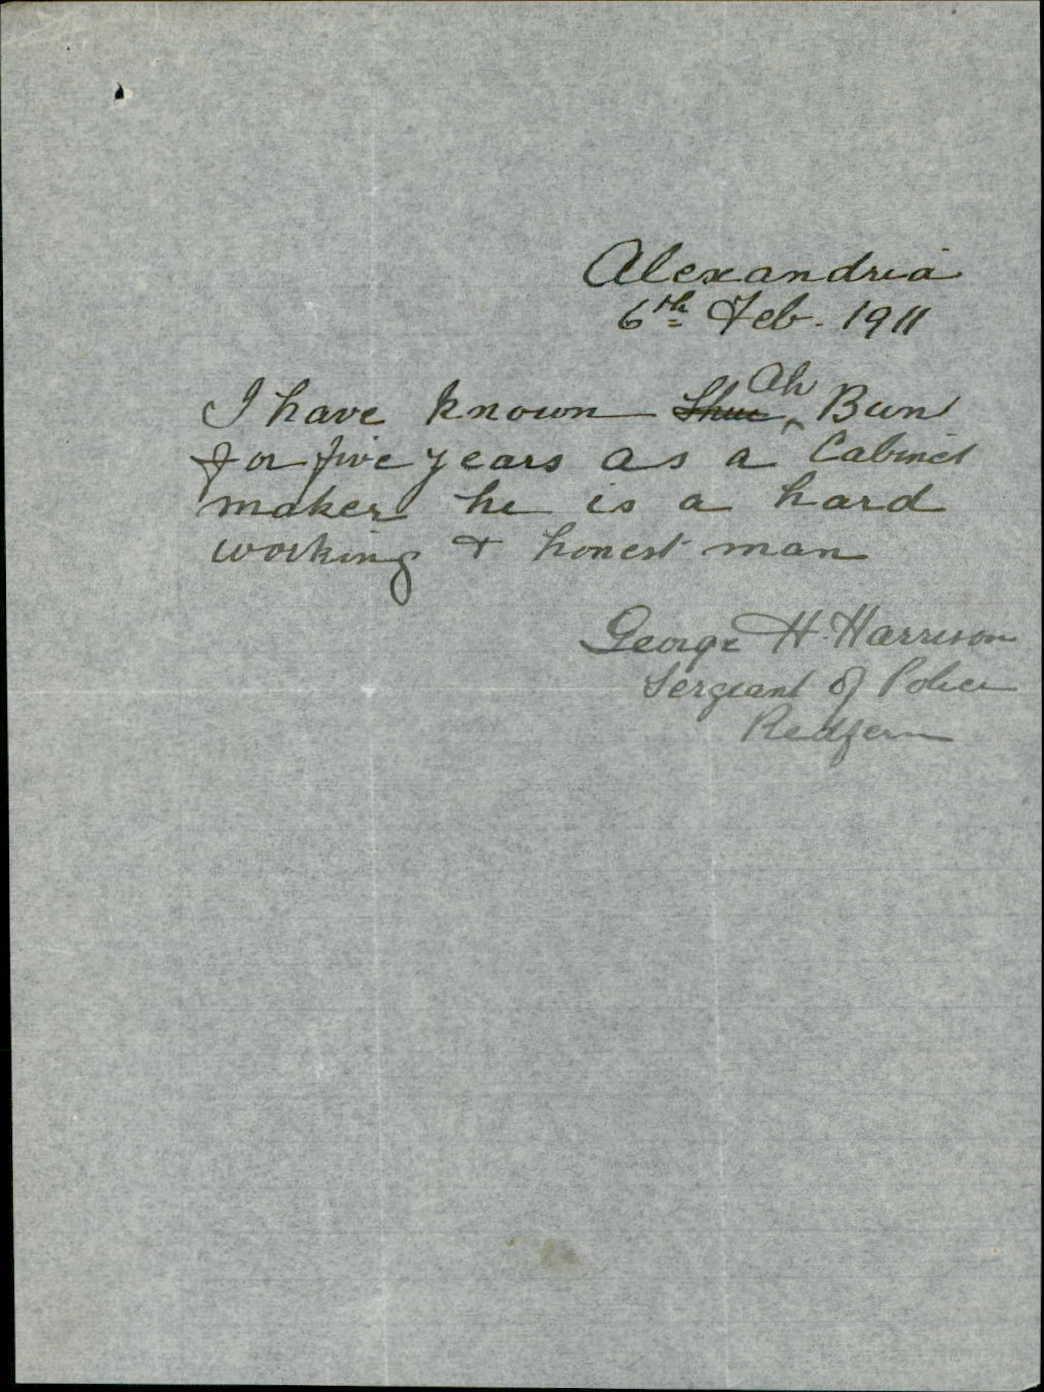 Alexandria
6th Feb. 1911
I have known Ah Bun
for five years as a Cabinet
maker he is a hard
working + honest man
George H. Harrison
Sergeant of Police
Redfern